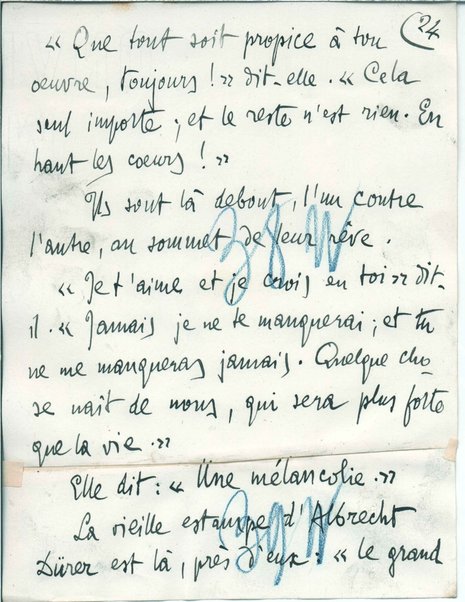 24
« Que tout soit propice à ton
oeuvre, toujours ! » dit-elle. « Cela
seul importe ; et le reste n'est rien. En
haut les coeurs ! »
Ils sont là debout, l'un contre
l'autre, au sommet de leur rêve.
38 W
« Je t'aime et je crois en toi » dit-
il. « Jamais je ne te manquerai ; et tu
ne me manqueras jamais. Quelque cho-
se naît de nous, qui sera plus forte
que la vie. »
Elle dit : « Une mélancolie. »
La vieille estampe d'Albrecht
39 W
Dürer est là, près d'eux : « le grand